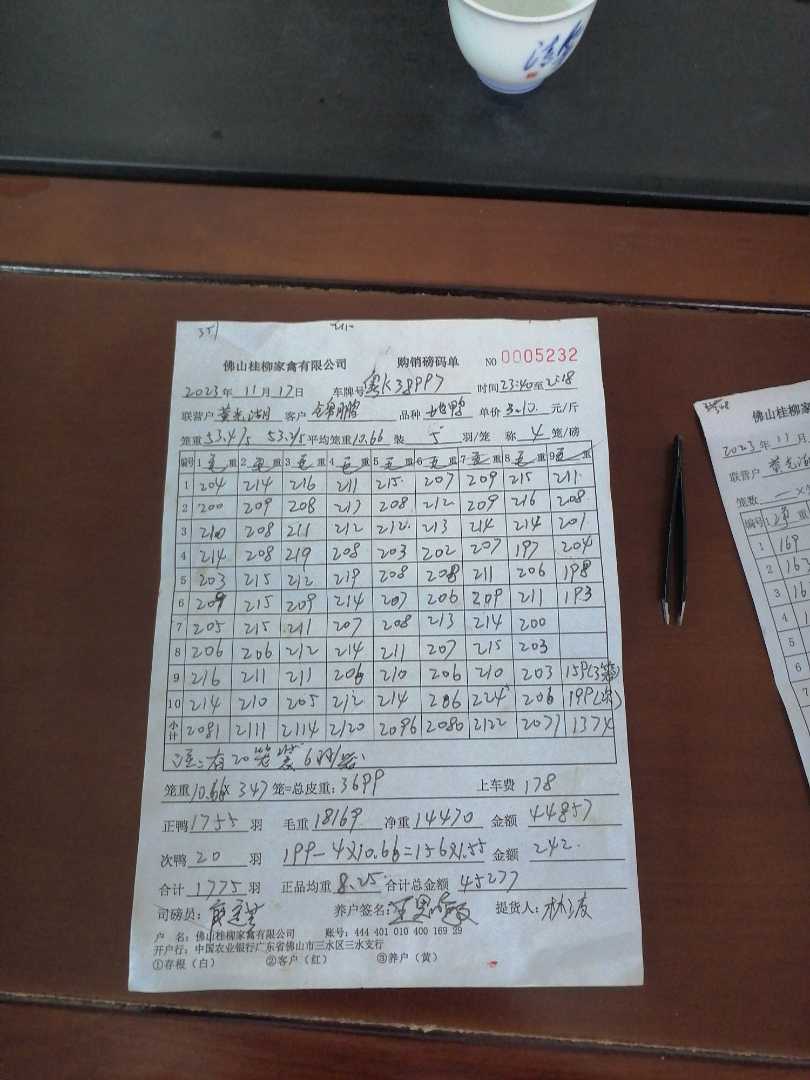 351
佛山桂柳家禽有限公司 购销磅码单 NO 0005232
2023年 11月 17日 车牌号 粤K38997 时间 23:40至2:18
联营户 董光湖 客户 锦鹏 品种 单价 3.10 元/斤
笼重 53.4/5 53.2/5 平均笼重 10.66 装 5 羽/笼 称 4 笼/磅
编号 1 毛重 2 毛重 3 毛重 4 毛重 5 毛重 6 毛重 7 毛重 8 毛重 9 毛重
1 204 214 216 211 215 207 209 215 211
2 200 209 208 217 208 212 209 216 208
3 210 208 211 212 212 213 214 214 201
4 214 208 219 208 203 202 207 197 204
5 203 215 212 219 208 208 211 206 198
6 209 215 209 214 207 206 209 211 193
7 205 215 211 207 208 213 214 200
8 206 206 212 214 211 207 215 203
9 216 211 211 206 210 206 210 203 159(3笼)
10 214 210 205 212 214 206 224 206 199(次)
小计 2081 2111 2114 2120 2096 2080 2122 2071 1374
注:有20笼装6羽/笼
笼重 10.66× 347 笼=总皮重: 3699 上车费 178
正鸭 1755 羽 毛重 18169 净重 14470 金额 44857
次鸭 20 羽 199-4×10.66=156×1.55 金额 242
合计 1775 羽 正品均重 8.25 合计总金额 45277
司磅员: 养户签名: 提货人:
户 名: 佛山桂柳家禽有限公司 账号: 444 401 010 400 169 29
开户行: 中国农业银行广东省佛山市三水区三水支行
①存根(白) ②客户(红) ③养户(黄)
佛山桂柳家
2023年 11月
联营户 董光湖
笼数
编号 1 重
1 169
2 163
3 16
4
5
6
7
8
9
10